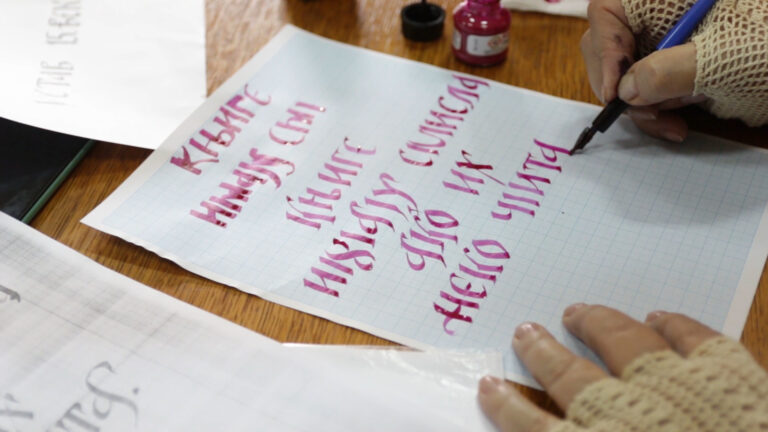 КЊИГЕ
ИМАЈУ
КЊИГЕ
ИМАЈУ СМИСЛА
АКО ИХ
НЕКО ЧИТА